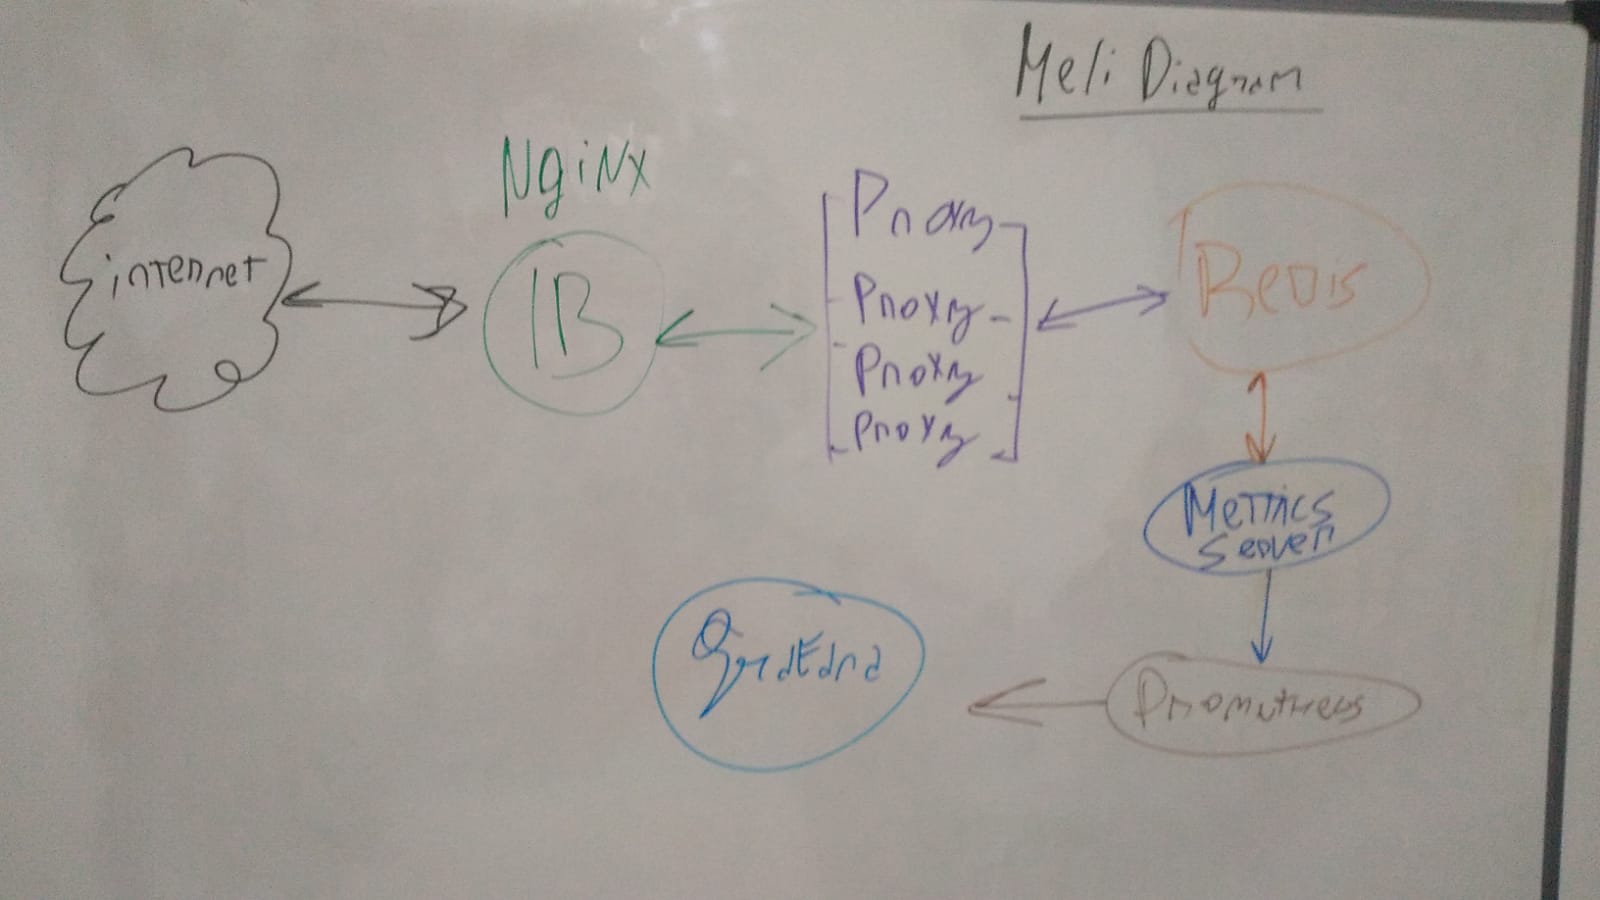 Meli Diagram
Nginx
internet
lB
Proxy
Proxy
Proxy
Proxy
Redis
Metrics
Server
Prometheus
Grafana